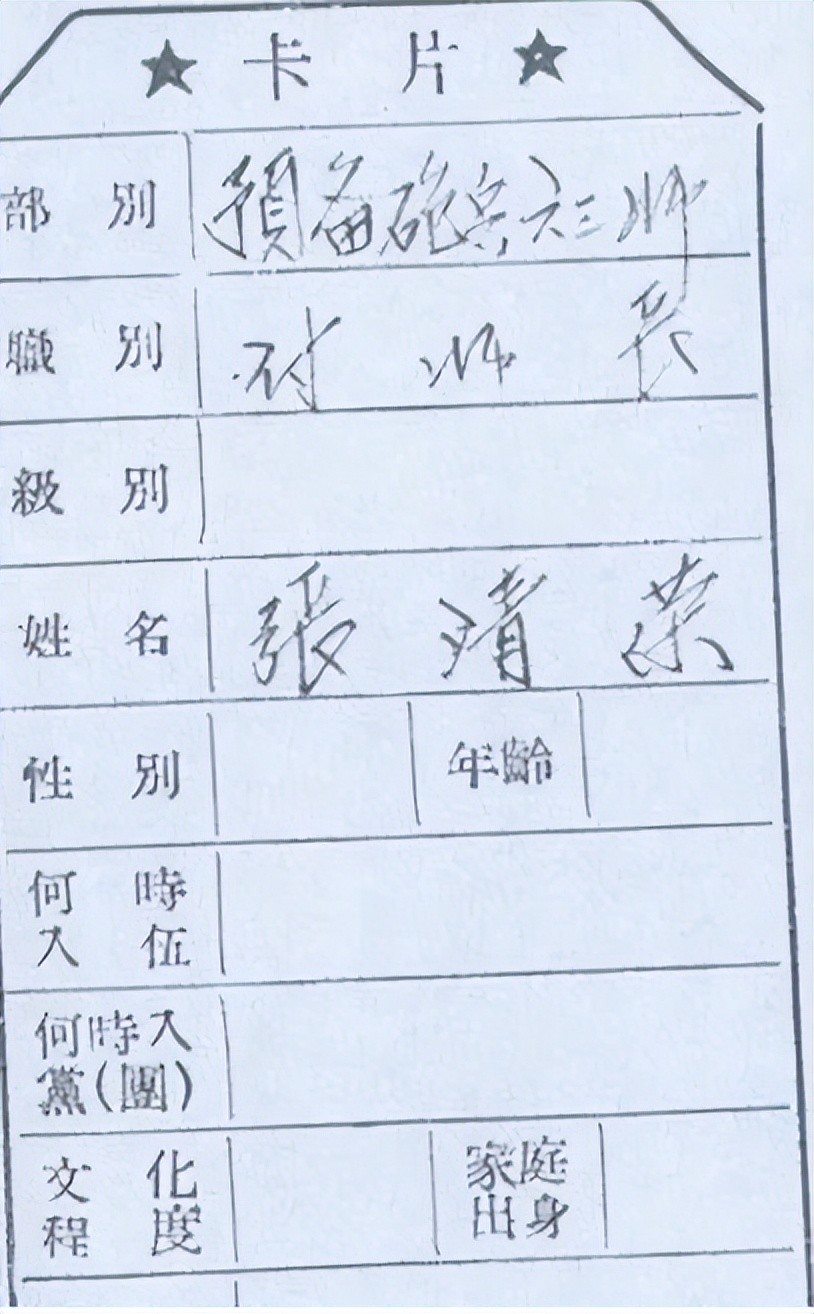 ★ 卡片 ★
部別 預备砲兵六三师
職別 付师長
級別
姓名 張清荣
性別 年齡
何時
入伍
何時入
黨(團)
文化 家庭
程度 出身